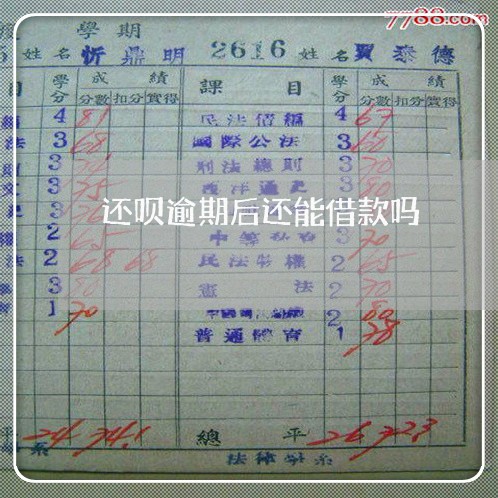 7788.com
學期
姓名 忻鼎明 2616 姓名 賈泰德
目 學分 成績 課目 學分 成績
分數 扣分 實得 分數 扣分 實得
4 81 民法債編 4 67
法 3 68 國際公法 3 60
3 刑法總則 3 70
3 75 西洋通史 3 80
还呗逾期后还能借款吗
3
2 65 3 70
法 2 68 68 民法物權 2 65
3 80 憲法 2 70
1 70 2 80
普通體育 1 78
平 24 74.1 總平 26 72.3
系 法律學系